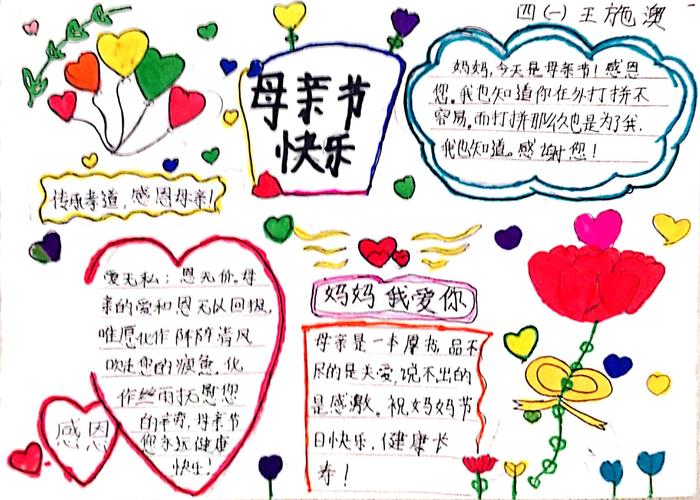 四(一)王施澳
母亲节
快乐
妈妈,今天是母亲节!感恩
您。我也知道你在外打拼不
容易。而打拼那么久也是为了我.
我也知道。感谢您!
传承孝道,感恩母亲!
爱无私;恩无价。母
亲的爱和恩无以回报,
唯愿化作阵阵清风
吹走您的疲惫。化
作丝丝雨抚慰您
的辛劳,母亲节
您永远健康
快乐!
感恩
妈妈我爱你
母亲是一本厚书,品不
尽的是关爱,说不出的
是感激。祝妈妈节
日快乐,健康长
寿!